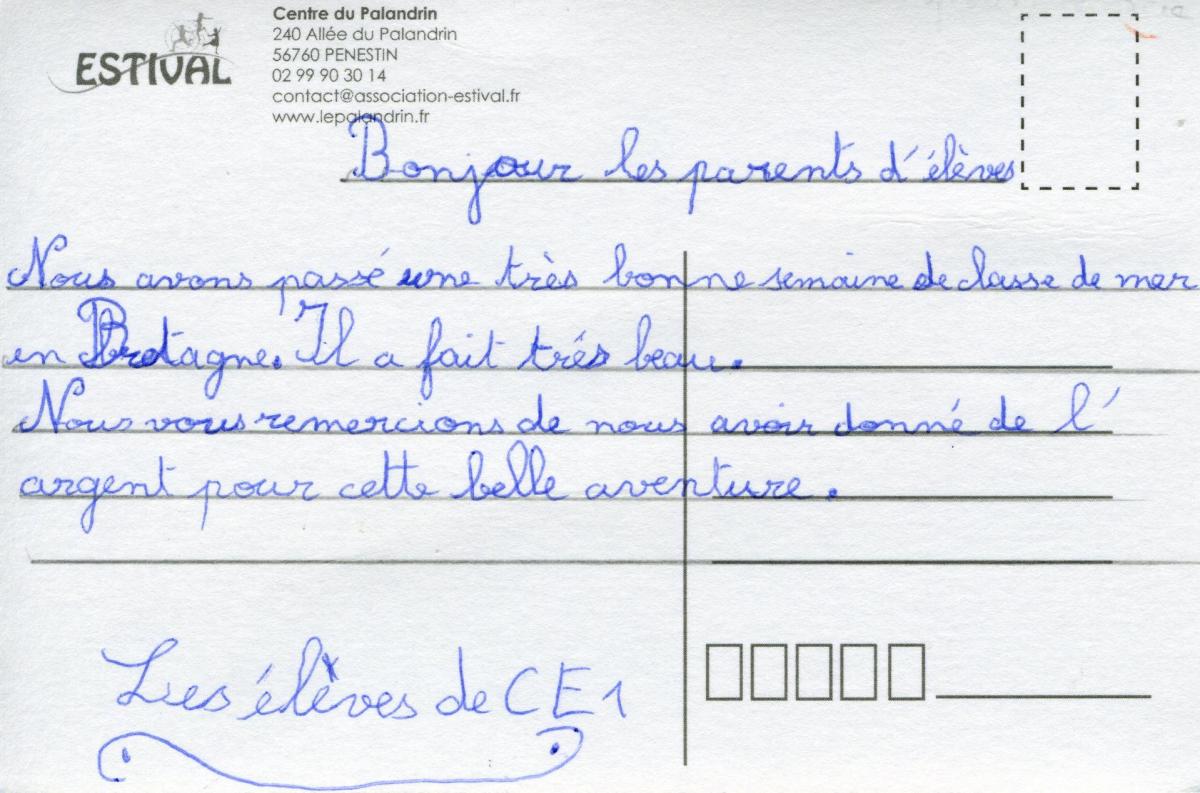 ESTIVAL
Centre du Palandrin
240 Allée du Palandrin
56760 PENESTIN
02 99 90 30 14
contact@association-estival.fr
www.lepalandrin.fr
Bonjour les parents d'élèves
Nous avons passé une très bonne semaine de classe de mer
en Bretagne. Il a fait trés beau.
Nous vous remercions de nous avoir donné de l'
argent pour cette belle aventure.
Les élèves de CE1